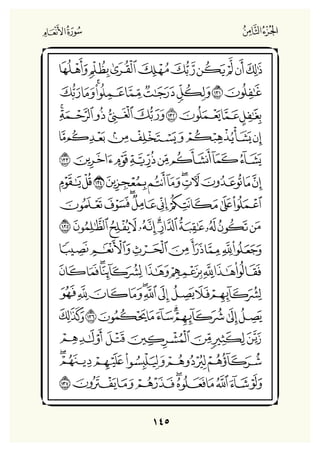 الجُزْءُ الثَّامِنُ سُورَةُ الأَنْعَامِ
ذَٰلِكَ أَن لَّمْ يَكُن رَّبُّكَ مُهْلِكَ ٱلْقُرَىٰ بِظُلْمٍ وَأَهْلُهَا
غَٰفِلُونَ ١٣١ وَلِكُلٍّ دَرَجَٰتٌ مِّمَّا عَمِلُوا۟ ۚ وَمَا رَبُّكَ
بِغَٰفِلٍ عَمَّا يَعْمَلُونَ ١٣٢ وَرَبُّكَ ٱلْغَنِىُّ ذُو ٱلرَّحْمَةِ ۚ
إِن يَشَأْ يُذْهِبْكُمْ وَيَسْتَخْلِفْ مِنۢ بَعْدِكُم مَّا
يَشَآءُ كَمَآ أَنشَأَكُم مِّن ذُرِّيَّةِ قَوْمٍ ءَاخَرِينَ ١٣٣
إِنَّ مَا تُوعَدُونَ لَءَاتٍ ۖ وَمَآ أَنتُم بِمُعْجِزِينَ ١٣٤ قُلْ يَٰقَوْمِ
ٱعْمَلُوا۟ عَلَىٰ مَكَانَتِكُمْ إِنِّى عَامِلٌ ۖ فَسَوْفَ تَعْلَمُونَ
مَن تَكُونُ لَهُۥ عَٰقِبَةُ ٱلدَّارِ ۗ إِنَّهُۥ لَا يُفْلِحُ ٱلظَّٰلِمُونَ ١٣٥
وَجَعَلُوا۟ لِلَّهِ مِمَّا ذَرَأَ مِنَ ٱلْحَرْثِ وَٱلْأَنْعَٰمِ نَصِيبًا
فَقَالُوا۟ هَٰذَا لِلَّهِ بِزَعْمِهِمْ وَهَٰذَا لِشُرَكَآئِنَا ۖ فَمَا كَانَ
لِشُرَكَآئِهِمْ فَلَا يَصِلُ إِلَى ٱللَّهِ ۖ وَمَا كَانَ لِلَّهِ فَهُوَ
يَصِلُ إِلَىٰ شُرَكَآئِهِمْ ۗ سَآءَ مَا يَحْكُمُونَ ١٣٦ وَكَذَٰلِكَ
زَيَّنَ لِكَثِيرٍ مِّنَ ٱلْمُشْرِكِينَ قَتْلَ أَوْلَٰدِهِمْ
شُرَكَآؤُهُمْ لِيُرْدُوهُمْ وَلِيَلْبِسُوا۟ عَلَيْهِمْ دِينَهُمْ ۖ
وَلَوْ شَآءَ ٱللَّهُ مَا فَعَلُوهُ ۖ فَذَرْهُمْ وَمَا يَفْتَرُونَ ١٣٧
١٤٥